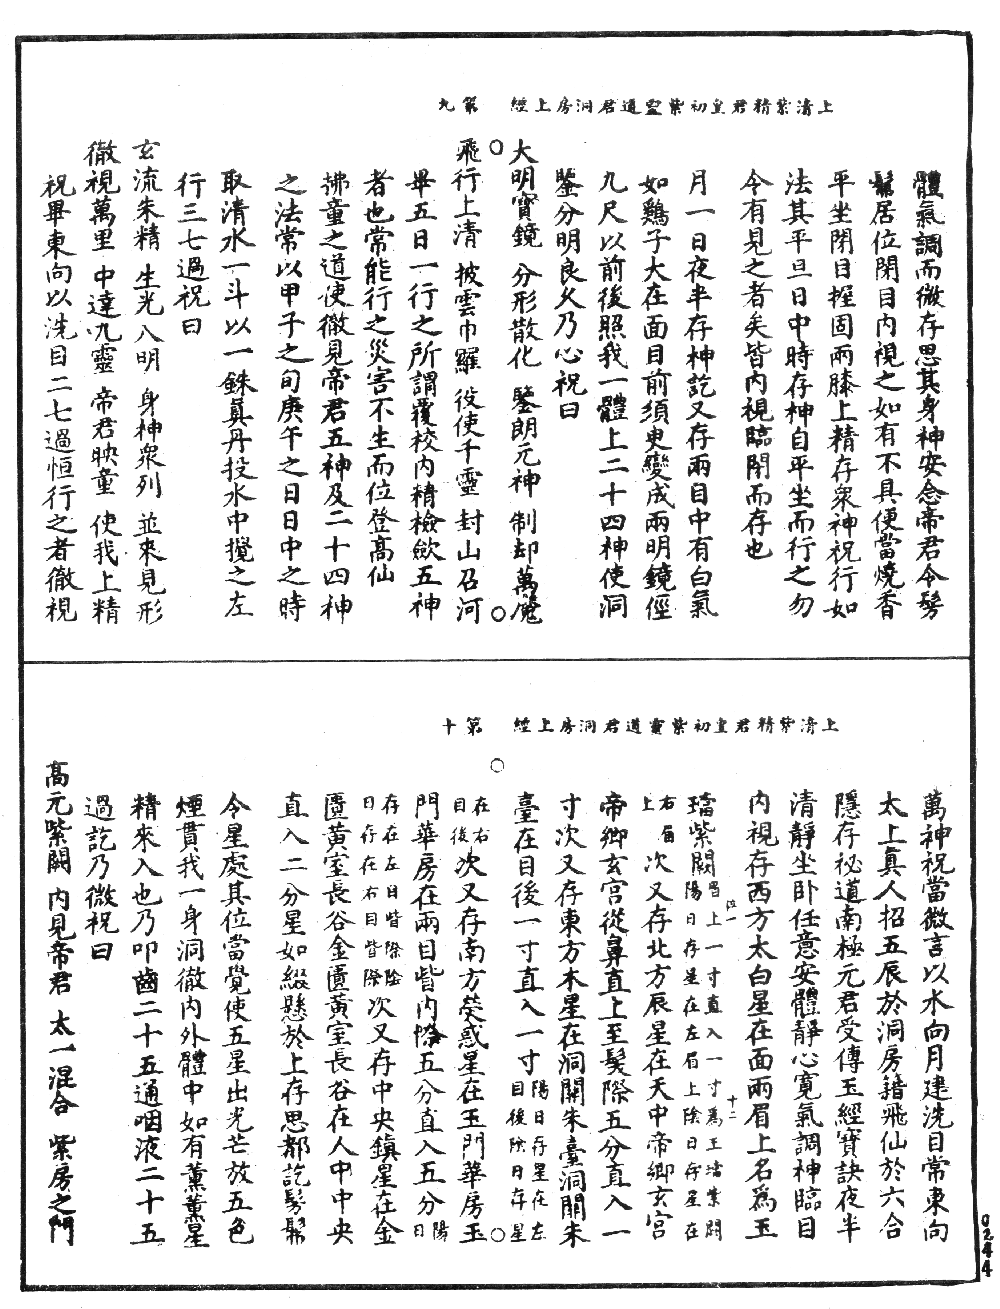 上清紫精君皇初紫靈道君洞房上經 第九
體氣調而微存思其身神安念帝君令髣
髴居位閉目內視之如有不具便當燒香
平坐閉目握固兩膝上精存衆神祝行如
法其平旦日中時存神自平坐而行之勿
令有見之者矣皆內視臨閉而存也
月一日夜半存神訖又存兩目中有白氣
如鷄子大在面目前須臾變成兩明鏡徑
九尺以前後照我一體上二十四神使洞
鑒分明良久乃心祝曰
大明寶鏡 分形散化 鑒朗元神 制却萬魔
飛行上清 披雲巾羅 役使千靈 封山召河
畢五日一行之所謂覆校內精檢斂五神
者也常能行之災害不生而位登高仙
拂童之道使徹見帝君五神及二十四神
之法常以甲子之旬庚午之日日中之時
取清水一斗以一銖真丹投水中攪之左
行三七過祝曰
玄流朱精 生光八明 身神衆列 並來見形
徹視萬里 中達九靈 帝君映童 使我上精
祝畢東向以洗目二七過恒行之者徹視
上清紫精君皇初紫靈道君洞房上經 第十
萬神祝當微言以水向月建洗目常東向
太上真人招五辰於洞房籍飛仙於六合
隱存祕道南極元君受傳玉經寶訣夜半
清靜坐卧任意安體靜心寬氣調神臨目
內視存西方太白星在面兩眉上名爲玉
璫紫闕眉上一寸直入一寸爲玉璫紫闕陽日存星在左眉上陰日存星在
右眉上次又存北方辰星在天中帝鄉玄宮
帝鄉玄宮從鼻直上至髮際五分直入一
寸次又存東方木星在洞闕朱臺洞闕朱
臺在目後一寸直入一寸陽日存星在左目後陰日存星
在右目後次又存南方熒惑星在玉門華房玉
門華房在兩目眥內際五分直入五分陽日
存在左目眥際陰日存在右目眥際次又存中央鎮星在金
匱黃室長谷金匱黃室長谷在人中中央
直入二分星如綴懸於上存思都訖髣髴
令星處其位當覺使五星出光芒放五色
煙貫我一身洞徹內外體中如有薰薰星
精來入也乃叩齒二十五通咽液二十五
過訖乃微祝曰
高元紫闕 內見帝君 太一混合 紫房之門
十二
0244